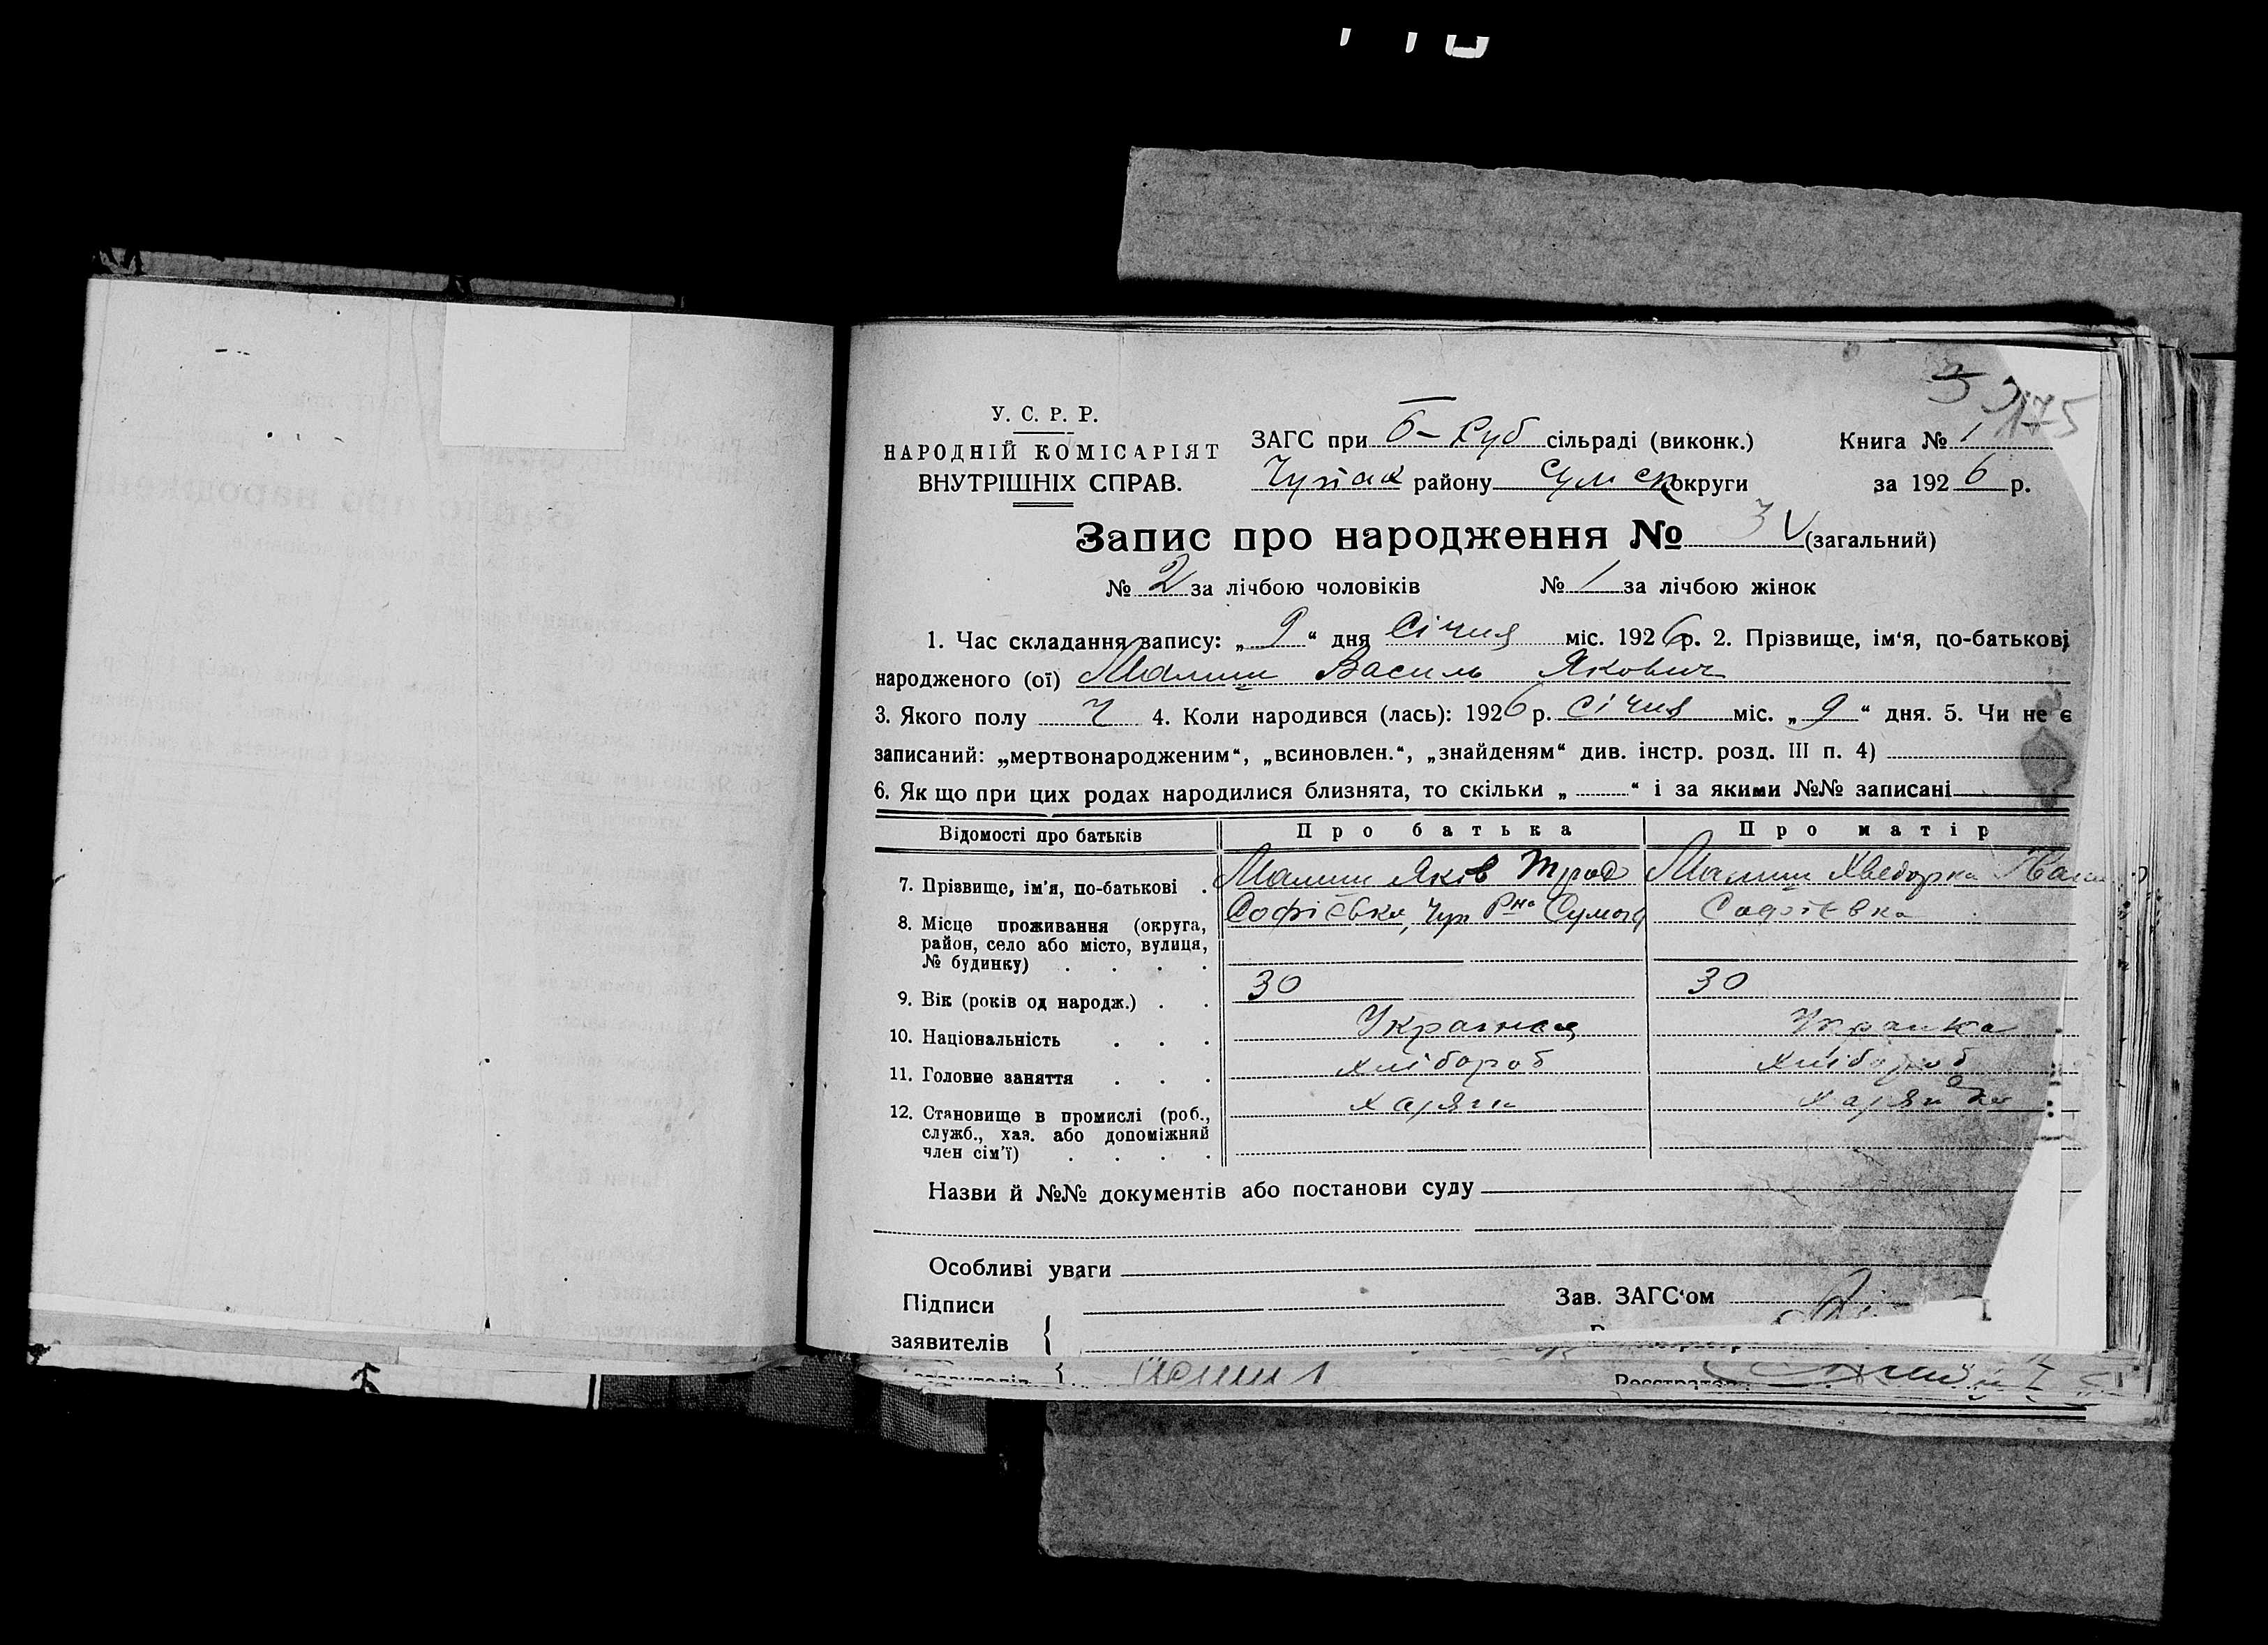 175
У. С. Р. Р.
НАРОДНІЙ КОМІСАРІЯТ
ВНУТРІШНІХ СПРАВ.
ЗАГС при Б-Руб сільраді (виконк.) Книга № 1
Чупах району Сумск округи за 1926 р.
Запис про народження № 3 (загальний)
№ 2 за лічбою чоловіків № 1 за лічбою жінок
1. Час складання запису: „ 9 “ дня Січня міс. 1926 р. 2. Прізвище, ім‘я, по-батькові
народженого (ої) Малиш Василь Якович
3. Якого полу Ч 4. Коли народився (лась): 1926 р. Січня міс. „ 9 “ дня. 5. Чи не є
записаний: „мертвонародженим“, „всиновлен.“, „знайденям“ див. інстр. розд. III п. 4)
6. Як що при цих родах народилися близнята, то скільки „ “ і за якими №№ записані
Відомості про батьків Про батька Про матір
7. Прізвище, ім'я, по-батькові Малиш Яків Малиш Хведорка Іван
8. Місце проживання (округа, Софієвка, Чуп Р-на Сумск Софієвка
район, село або місто, вулиця,
№ будинку)
9. Вік (років од народж.) 30 30
10. Національність Українец Українка
11. Головне заняття хлібороб хлібороб
12. Становище в промислі (роб., хазяін хазяйка
служб., хаз. або допоміжний
член сім'ї)
Назви й №№ документів або постанови суду
Особливі уваги
Підписи Зав. ЗАГС‘ом
заявителів {
Реєстратор